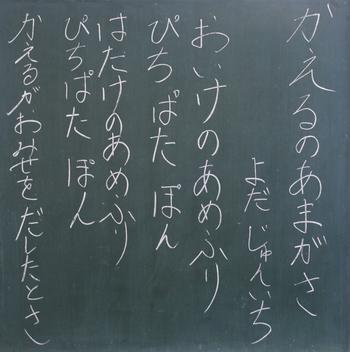 かえるのあまがさ
よだじゅんいち
おいけのあめふり
ぴちぱたぽん
はたけのあめふり
ぴちぱたぽん
かえるがおみせをだしたとさ